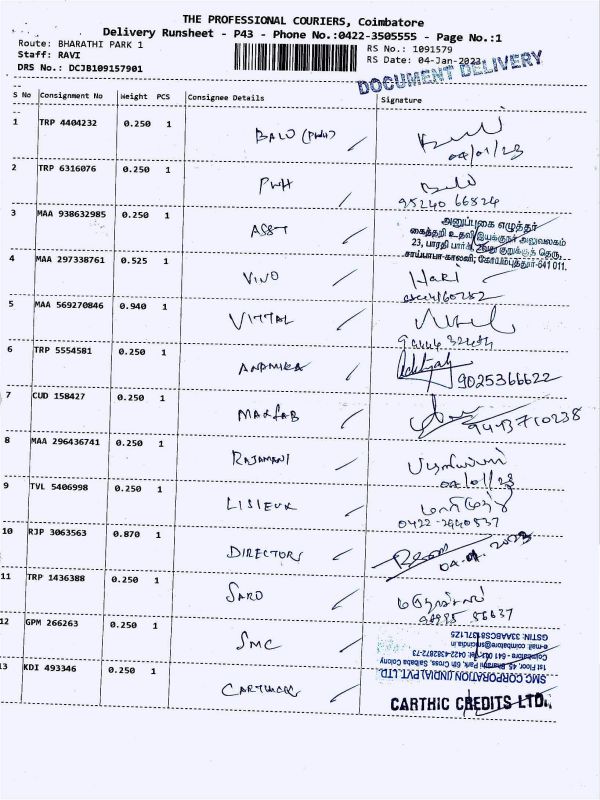 THE PROFESSIONAL COURIERS, Coimbatore
Delivery Runsheet - P43 - Phone No.:0422-3505555 - Page No.:1
Route: BHARATHI PARK 1 RS No.: 1091579
Staff: RAVI RS Date: 04-Jan-2023
DRS No.: DCJB109157901
DOCUMENT DELIVERY
S No Consignment No Weight PCS Consignee Details Signature
1 TRP 4404232 0.250 1 BALU (PWH)
04/01/23
2 TRP 6316076 0.250 1 PWH
95240 66824
3 MAA 938632985 0.250 1 ASST
அனுப்புகை எழுத்தர்
கைத்தறி உதவி இயக்குநர் அலுவலகம்
23, பாரதி பார்க் 2வது குறுக்குத் தெரு,
சாய்பாபா காலனி, கோயம்புத்தூர்-641 011.
4 MAA 297338761 0.525 1 VIVO Hari
5 MAA 569270846 0.940 1 VITTAL
6 TRP 5554581 0.250 1
9025366622
7 CUD 158427 0.250 1
9413710238
8 MAA 296436741 0.250 1 RAJAMANI
04/01/23
9 TVL 5406998 0.250 1 LISIEUX
0422-2440537
10 RJP 3063563 0.870 1 DIRECTORS
04.01.2023
11 TRP 1436388 0.250 1 SARO
12 GPM 266263 0.250 1 SMC
SMC CORPORATION (INDIA) PVT. LTD
1st Floor, 45, Bharathi Park, 6th Cross, Saibaba Colony
GSTIN: 33AABCS7371L1Z5
13 KDI 493346 0.250 1
CARTHIC CREDITS LTD.,